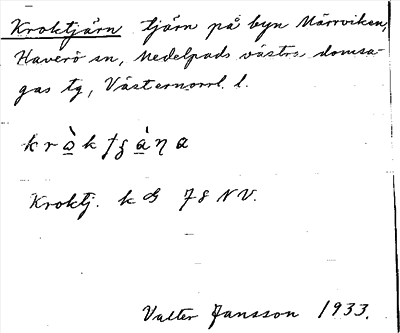 Kroktjärn tjärn på byn Märrviken,
Haverö sn, Medelpads västra domsa-
gas tg, Västernorrl. l.
Kroktj. k 78 NV.
Valter Jansson 1933.